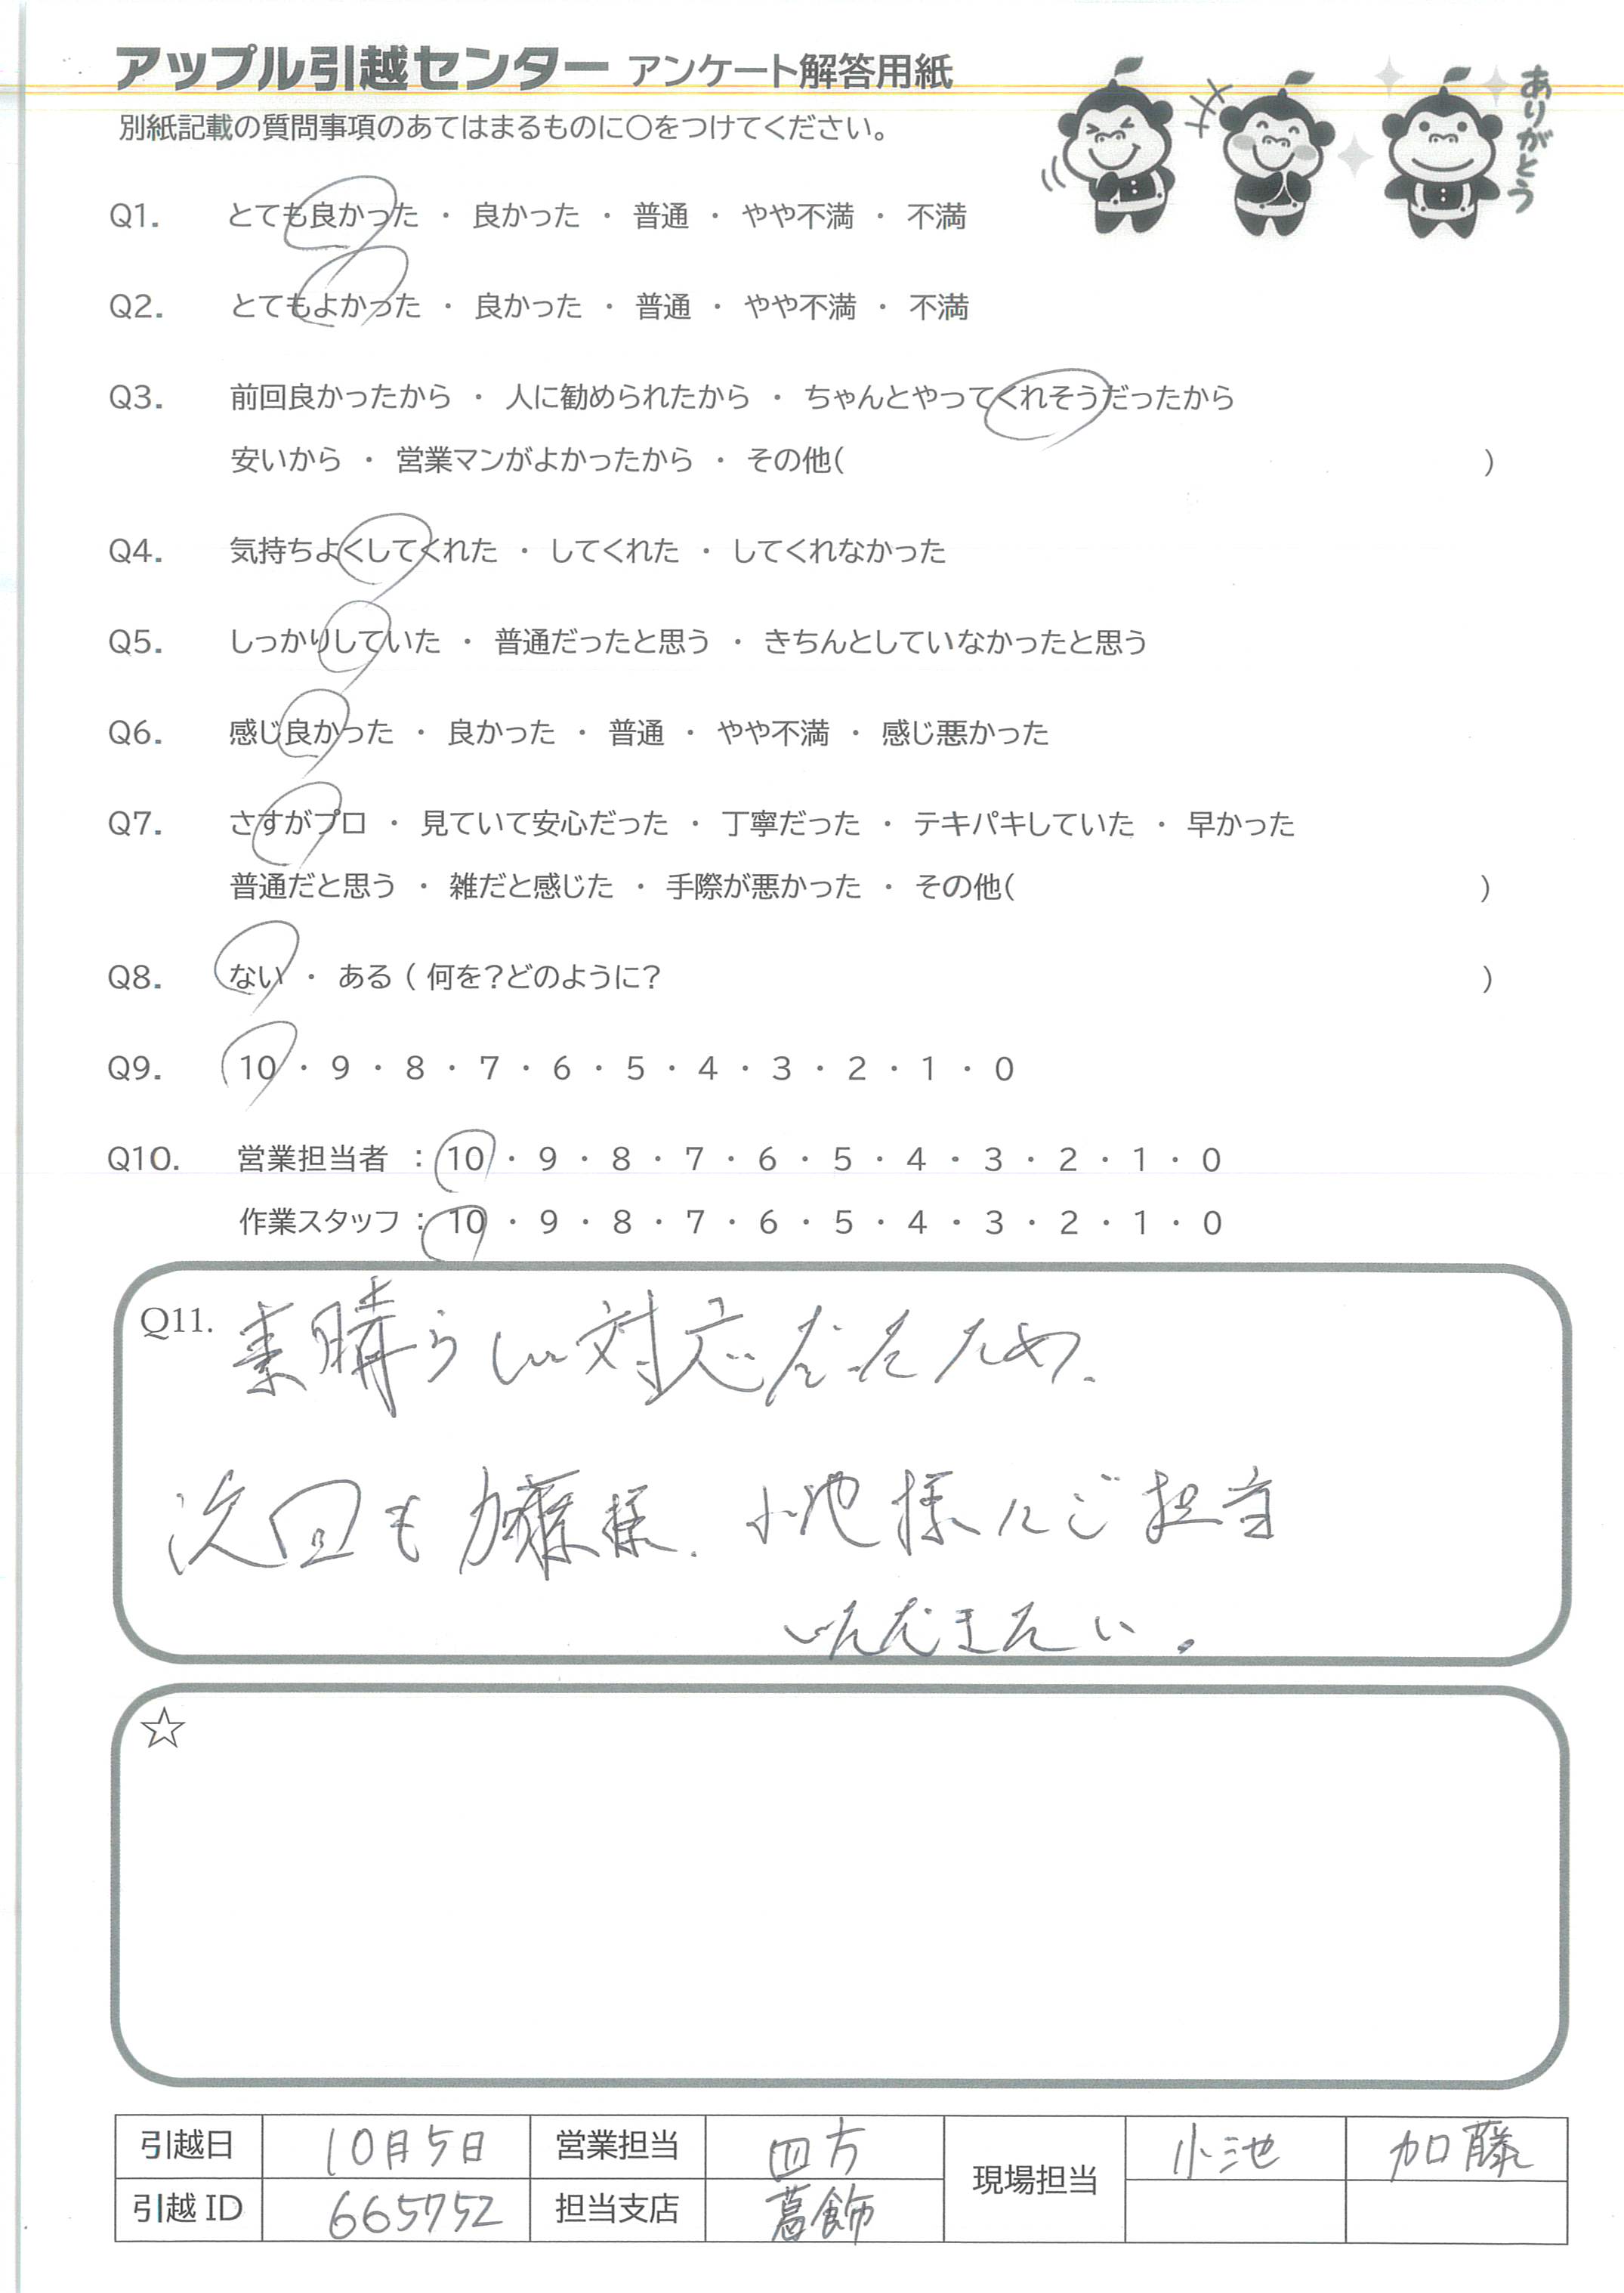 アップル引越センター アンケート解答用紙
別紙記載の質問事項のあてはまるものに〇をつけてください。
ありがとう
Q1. とても良かった ・ 良かった ・ 普通 ・ やや不満 ・ 不満
Q2. とてもよかった ・ 良かった ・ 普通 ・ やや不満 ・ 不満
Q3. 前回良かったから ・ 人に勧められたから ・ ちゃんとやってくれそうだったから
安いから ・ 営業マンがよかったから ・ その他( )
Q4. 気持ちよくしてくれた ・ してくれた ・ してくれなかった
Q5. しっかりしていた ・ 普通だったと思う ・ きちんとしていなかったと思う
Q6. 感じ良かった ・ 良かった ・ 普通 ・ やや不満 ・ 感じ悪かった
Q7. さすがプロ ・ 見ていて安心だった ・ 丁寧だった ・ テキパキしていた ・ 早かった
普通だと思う ・ 雑だと感じた ・ 手際が悪かった ・ その他( )
Q8. ない ・ ある ( 何を?どのように? )
Q9. 10 ・ 9 ・ 8 ・ 7 ・ 6 ・ 5 ・ 4 ・ 3 ・ 2 ・ 1 ・ 0
Q10. 営業担当者 : 10 ・ 9 ・ 8 ・ 7 ・ 6 ・ 5 ・ 4 ・ 3 ・ 2 ・ 1 ・ 0
作業スタッフ : 10 ・ 9 ・ 8 ・ 7 ・ 6 ・ 5 ・ 4 ・ 3 ・ 2 ・ 1 ・ 0
Q11. 素晴らしい対応だったため、
次回も加藤様、小池様にご担当
いただきたい。
☆
引越日 10月5日 営業担当 四方 現場担当 小池 加藤
引越 ID 665752 担当支店 葛飾